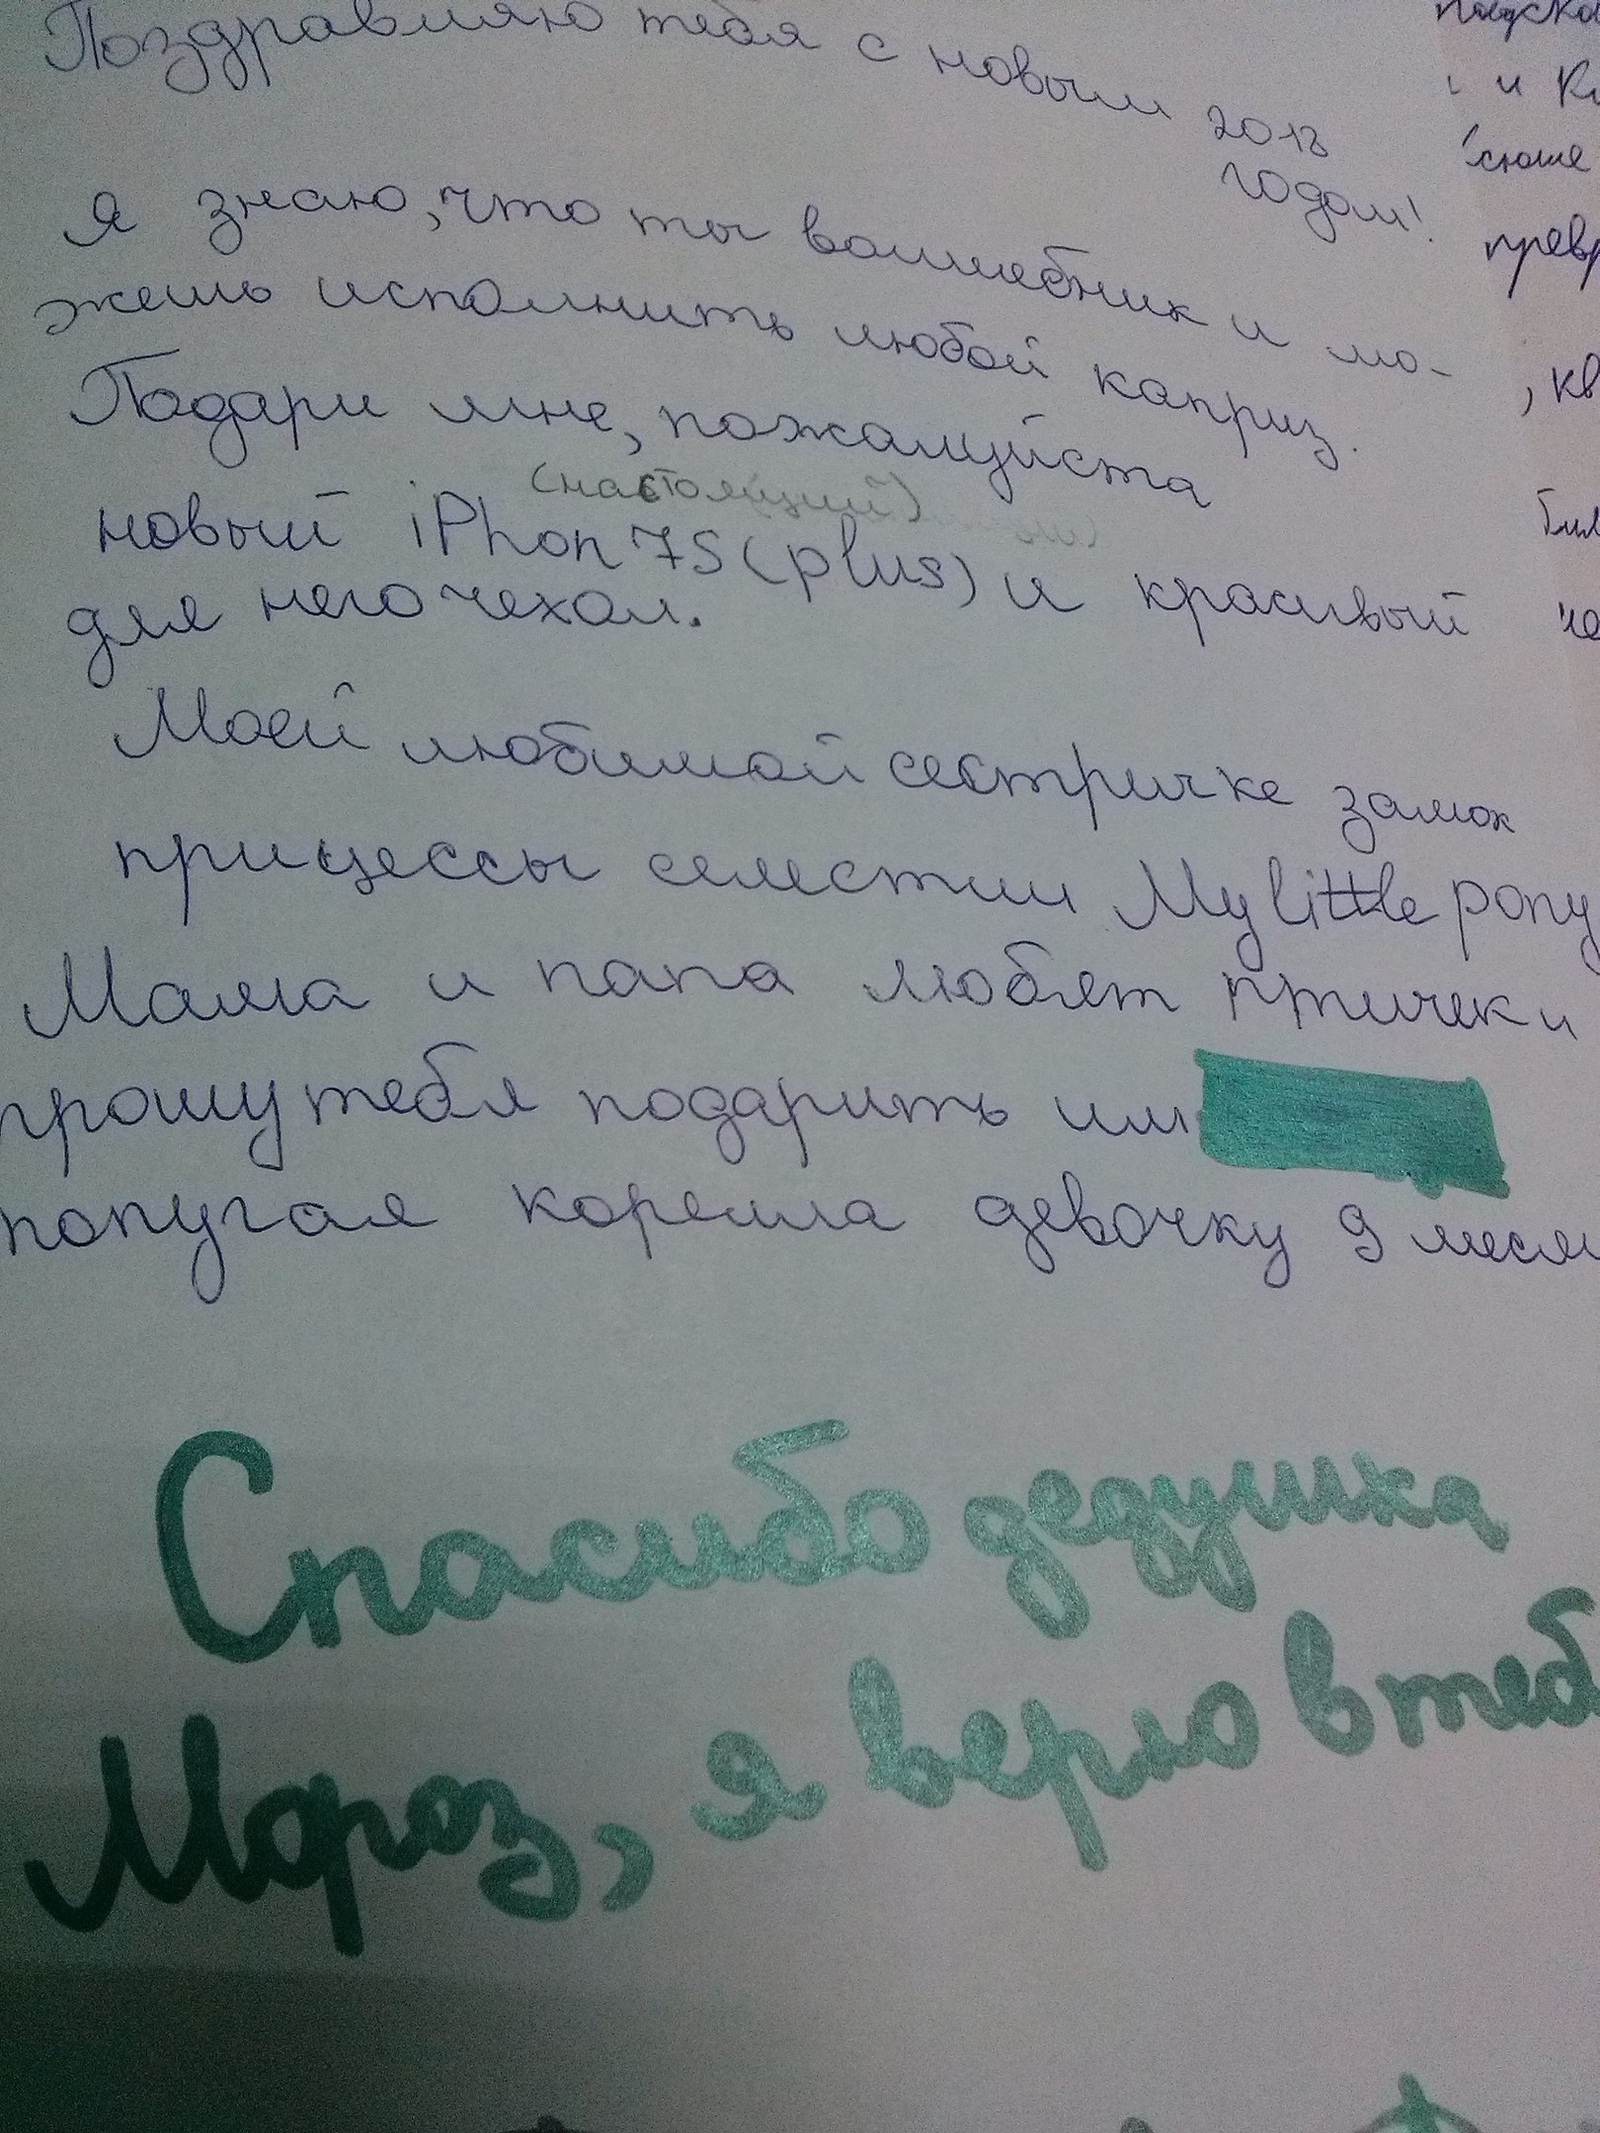 Поздравляю тебя с новым 2018
годом!
Я знаю, что ты волшебник и мо-
жешь исполнить любой каприз.
Подари мне, пожалуйста
(настоящий)
новый iPhon 7S (plus) и красивый
для него чехол.
Моей любимой сестричке замок
прицессы селестии My little pony
Мама и папа любят птичек и
прошу тебя подарить им
попугая корелла девочку 9
Спасибо дедушка
Мороз, я верю в